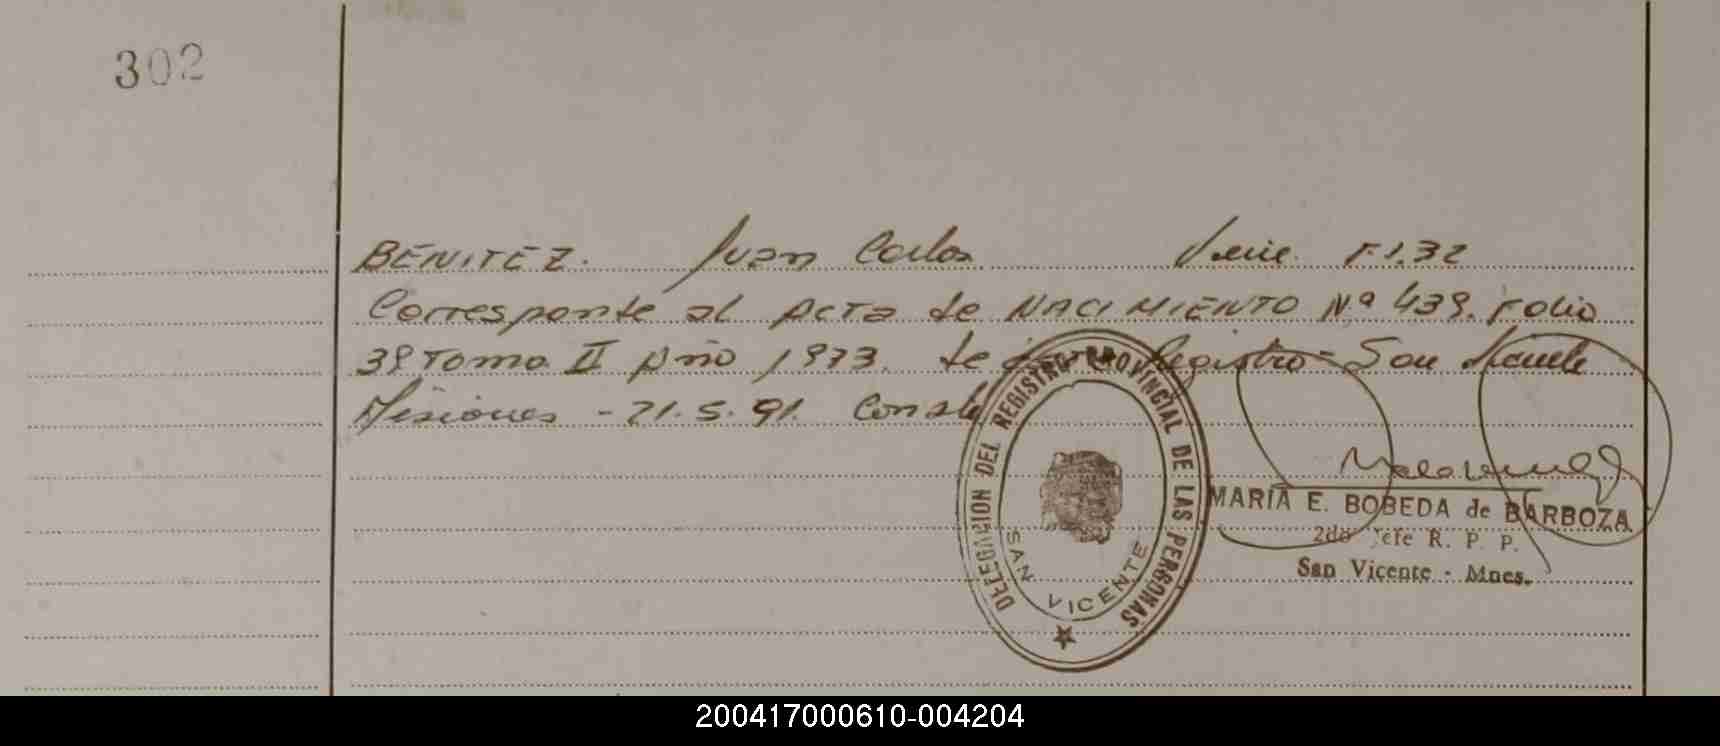 302
BENITEZ. Juan Carlos Serie F.1.32
Corresponde al ACTA de NACIMIENTO Nº 439. Folio
39 Tomo II Año 1973. de Registro - San Vicente
Misiones - 21.5.91. Conste
DELEGACION DEL REGISTRO PROVINCIAL DE LAS PERSONAS
SAN VICENTE
MARIA E. BOBEDA de BARBOZA
2do Jefe R. P. P.
San Vicente - Mnes.
200417000610-004204